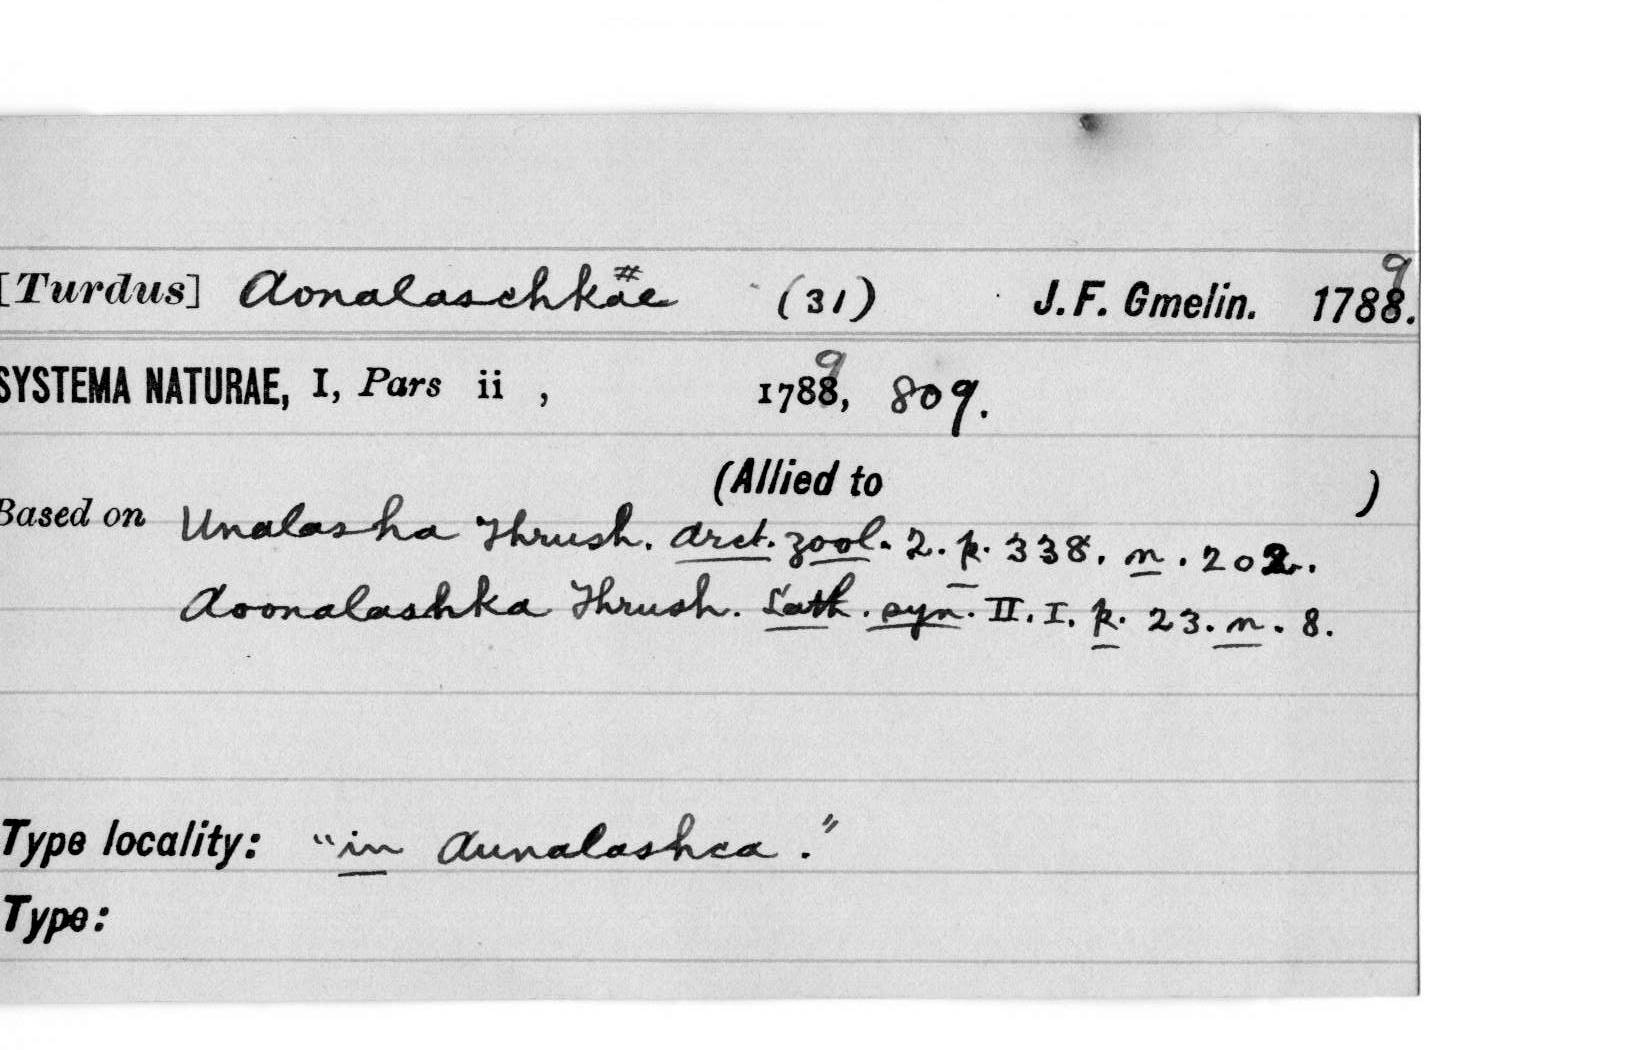 [Turdus] Aonalaschkae # (31) J. F. Gmelin. 1788. 9
SYSTEMA NATURAE, I, Pars ii , 1788, 9 809.
(Allied to )
Based on Unalasha Thrush. Arct. zool. 2. p. 338. n. 202.
Aoonalashka Thrush. Lath. syn. II. I. p. 23. n. 8.
Type locality: "in Aunalashca."
Type: